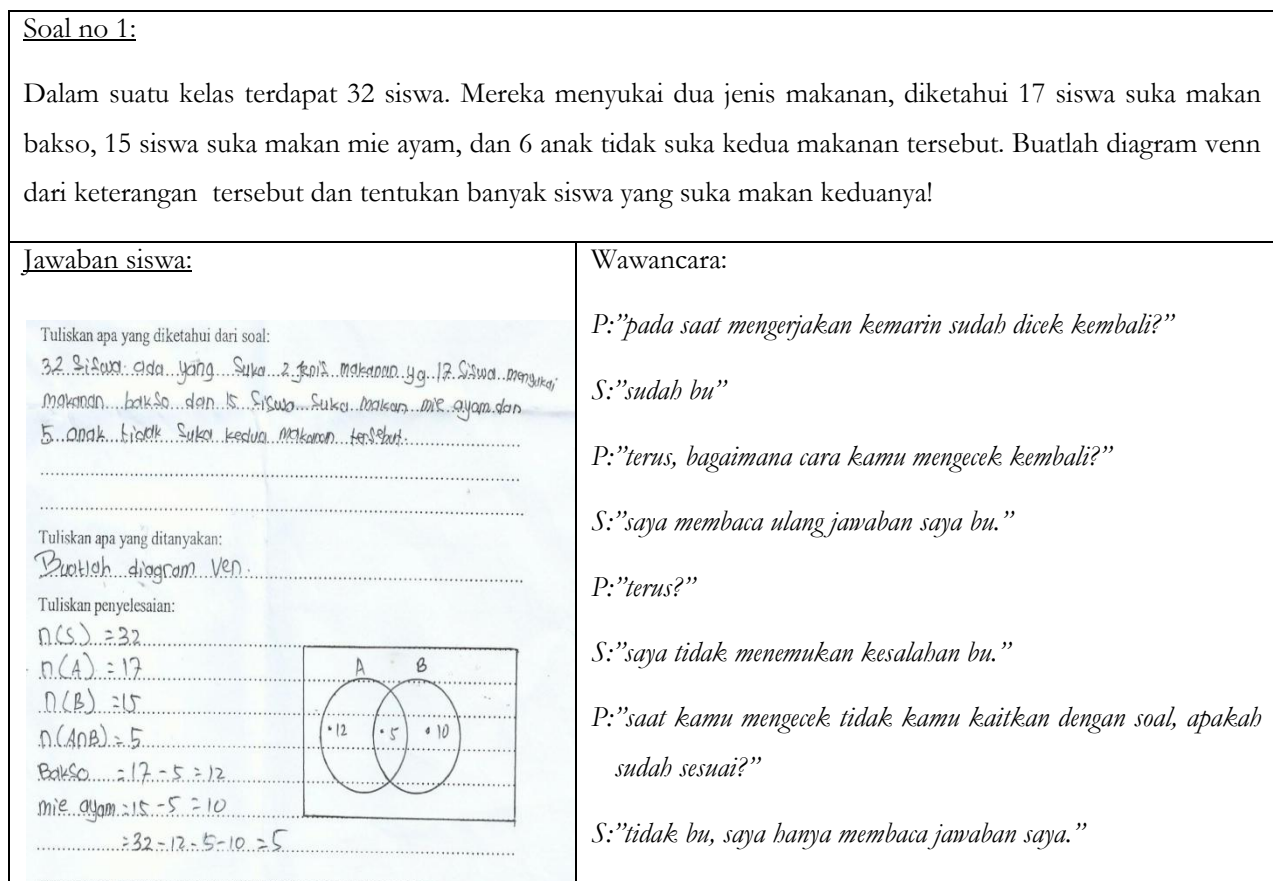 Soal no 1:
Dalam suatu kelas terdapat 32 siswa. Mereka menyukai dua jenis makanan, diketahui 17 siswa suka makan
bakso, 15 siswa suka makan mie ayam, dan 6 anak tidak suka kedua makanan tersebut. Buatlah diagram venn
dari keterangan tersebut dan tentukan banyak siswa yang suka makan keduanya!
Jawaban siswa:
Tuliskan apa yang diketahui dari soal:
32 Siswa ada yang Suka 2 jenis makanan yg 17 Siswa menyukai
makanan bakso dan 15 Siswa Suka makan mie ayam dan
5 anak tidak Suka kedua makanan tersebut.
Tuliskan apa yang ditanyakan:
Buatlah diagram Ven.
Tuliskan penyelesaian:
n(S) = 32
n(A) = 17
n(B) = 15
n(A∩B) = 5
Bakso = 17 - 5 = 12
mie ayam = 15 - 5 = 10
= 32 - 12 - 5 - 10 = 5
A B
•12 •5 •10
Wawancara:
P:”pada saat mengerjakan kemarin sudah dicek kembali?”
S:”sudah bu”
P:”terus, bagaimana cara kamu mengecek kembali?”
S:”saya membaca ulang jawaban saya bu.”
P:”terus?”
S:”saya tidak menemukan kesalahan bu.”
P:”saat kamu mengecek tidak kamu kaitkan dengan soal, apakah
sudah sesuai?”
S:”tidak bu, saya hanya membaca jawaban saya.”